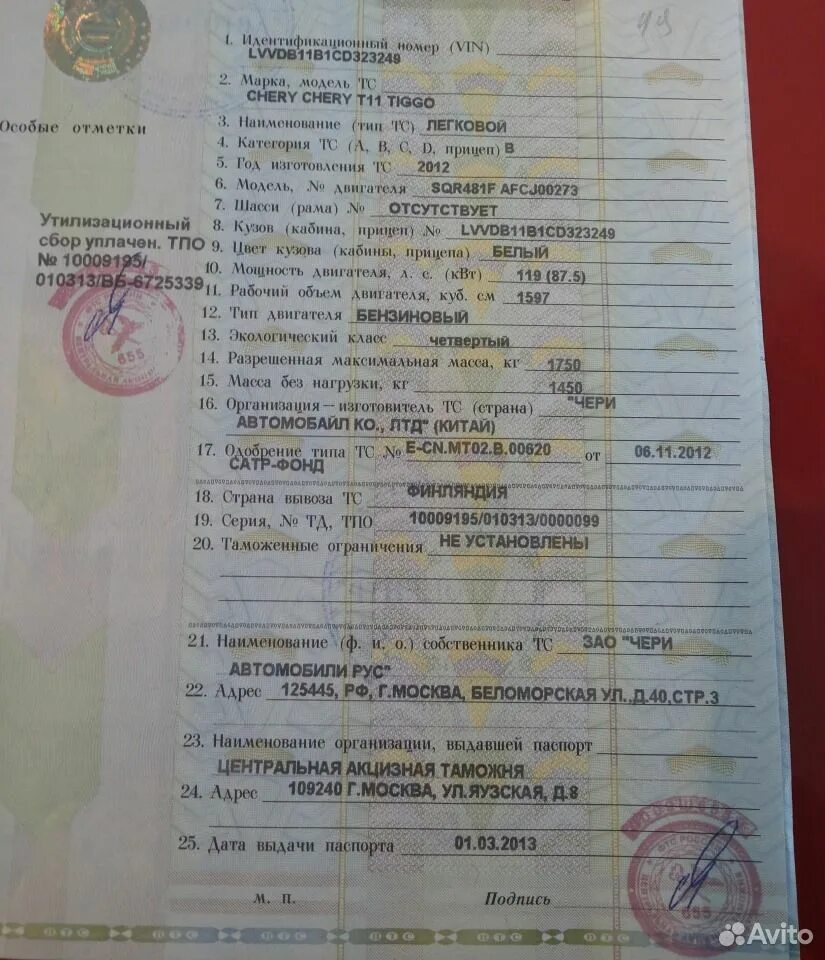 1. Идентификационный номер (VIN)
LVVDB11B1CD323249
2. Марка, модель ТС
CHERY CHERY T11 TIGGO
Особые отметки
3. Наименование (тип ТС) ЛЕГКОВОЙ
4. Категория ТС (А, В, С, D, прицеп) В
5. Год изготовления ТС 2012
6. Модель, № двигателя SQR481F AFCJ00273
7. Шасси (рама) № ОТСУТСТВУЕТ
8. Кузов (кабина, прицеп) № LVVDB11B1CD323249
Утилизационный
сбор уплачен. ТПО
№ 10009195/
010313/ВБ-6725339
9. Цвет кузова (кабины, прицепа) БЕЛЫЙ
10. Мощность двигателя, л. с. (кВт) 119 (87.5)
11. Рабочий объем двигателя, куб. см 1597
12. Тип двигателя БЕНЗИНОВЫЙ
13. Экологический класс четвертый
14. Разрешенная максимальная масса, кг 1750
15. Масса без нагрузки, кг 1450
16. Организация—изготовитель ТС (страна) "ЧЕРИ
АВТОМОБАЙЛ КО., ЛТД" (КИТАЙ)
17. Одобрение типа ТС № E-CN.MT02.B.00620 от 06.11.2012
САТР-ФОНД
18. Страна вывоза ТС ФИНЛЯНДИЯ
19. Серия, № ТД, ТПО 10009195/010313/0000099
20. Таможенные ограничения НЕ УСТАНОВЛЕНЫ
21. Наименование (ф. и. о.) собственника ТС ЗАО "ЧЕРИ
АВТОМОБИЛИ РУС"
22. Адрес 125445, РФ, Г.МОСКВА, БЕЛОМОРСКАЯ УЛ.,Д.40,СТР.3
23. Наименование организации, выдавшей паспорт
ЦЕНТРАЛЬНАЯ АКЦИЗНАЯ ТАМОЖНЯ
24. Адрес 109240 Г.МОСКВА, УЛ.ЯУЗСКАЯ, Д.8
25. Дата выдачи паспорта 01.03.2013
М. П. Подпись
655
655
ПТС ПТС ПТС ПТС ПТС ПТС
Avito